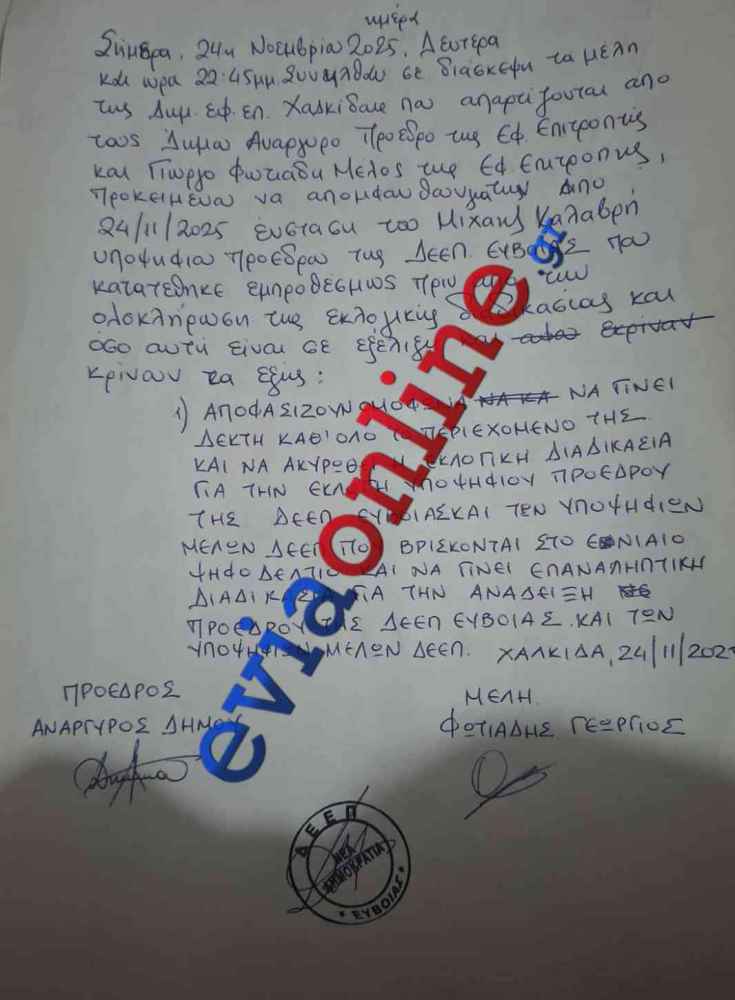 ημέρα
Σήμερα, 24η Νοεμβρίου 2025, Δευτέρα
και ώρα 22:45μμ. Συνήλθαν σε διάσκεψη τα μέλη
της Δημ. Εφ. Επ. Χαλκίδας που απαρτίζονται από
τους Δήμου Ανάργυρο Πρόεδρο της Εφ. Επιτροπής
και Γιώργο Φωτιάδη Μέλος της Εφ. Επιτροπής,
προκειμένου να αποφανθούν για την από
24/11/2025 ένσταση του Μιχαήλ Καλαβρή
υποψηφίου Προέδρου της ΔΕΕΠ ΕΥΒΟΙΑΣ που
κατατέθηκε εμπροθέσμως πριν από την
ολοκλήρωση της εκλογικής διαδικασίας και
όσο αυτή είναι σε εξέλιξη και αφού έκριναν
κρίνουν τα εξής:
1) ΑΠΟΦΑΣΙΖΟΥΝ ΟΜΟΦΩΝΑ ΝΑ ΚΑ ΝΑ ΓΙΝΕΙ
ΔΕΚΤΗ ΚΑΘ'ΟΛΟ ΤΟ ΠΕΡΙΕΧΟΜΕΝΟ ΤΗΣ
ΚΑΙ ΝΑ ΑΚΥΡΩΘΕΙ Η ΕΚΛΟΓΙΚΗ ΔΙΑΔΙΚΑΣΙΑ
ΓΙΑ ΤΗΝ ΕΚΛΟΓΗ ΥΠΟΨΗΦΙΟΥ ΠΡΟΕΔΡΟΥ
ΤΗΣ ΔΕΕΠ ΕΥΒΟΙΑΣ ΚΑΙ ΤΩΝ ΥΠΟΨΗΦΙΩΝ
ΜΕΛΩΝ ΔΕΕΠ ΠΟΥ ΒΡΙΣΚΟΝΤΑΙ ΣΤΟ ΕΝΙΑΙΟ
ΨΗΦΟΔΕΛΤΙΟ ΚΑΙ ΝΑ ΓΙΝΕΙ ΕΠΑΝΑΛΗΠΤΙΚΗ
ΔΙΑΔΙΚΑΣΙΑ ΓΙΑ ΤΗΝ ΑΝΑΔΕΙΞΗ
ΠΡΟΕΔΡΟΥ ΤΗΣ ΔΕΕΠ ΕΥΒΟΙΑΣ ΚΑΙ ΤΩΝ
ΥΠΟΨΗΦΙΩΝ ΜΕΛΩΝ ΔΕΕΠ. ΧΑΛΚΙΔΑ, 24/11/202
ΠΡΟΕΔΡΟΣ
ΜΕΛΗ.
ΑΝΑΡΓΥΡΟΣ ΔΗΜΟΥ
ΦΩΤΙΑΔΗΣ ΓΕΩΡΓΙΟΣ
ΔΕΕΠ
ΝΕΑ
ΔΗΜΟΚΡΑΤΙΑ
* ΕΥΒΟΙΑΣ *
eviaonline.gr